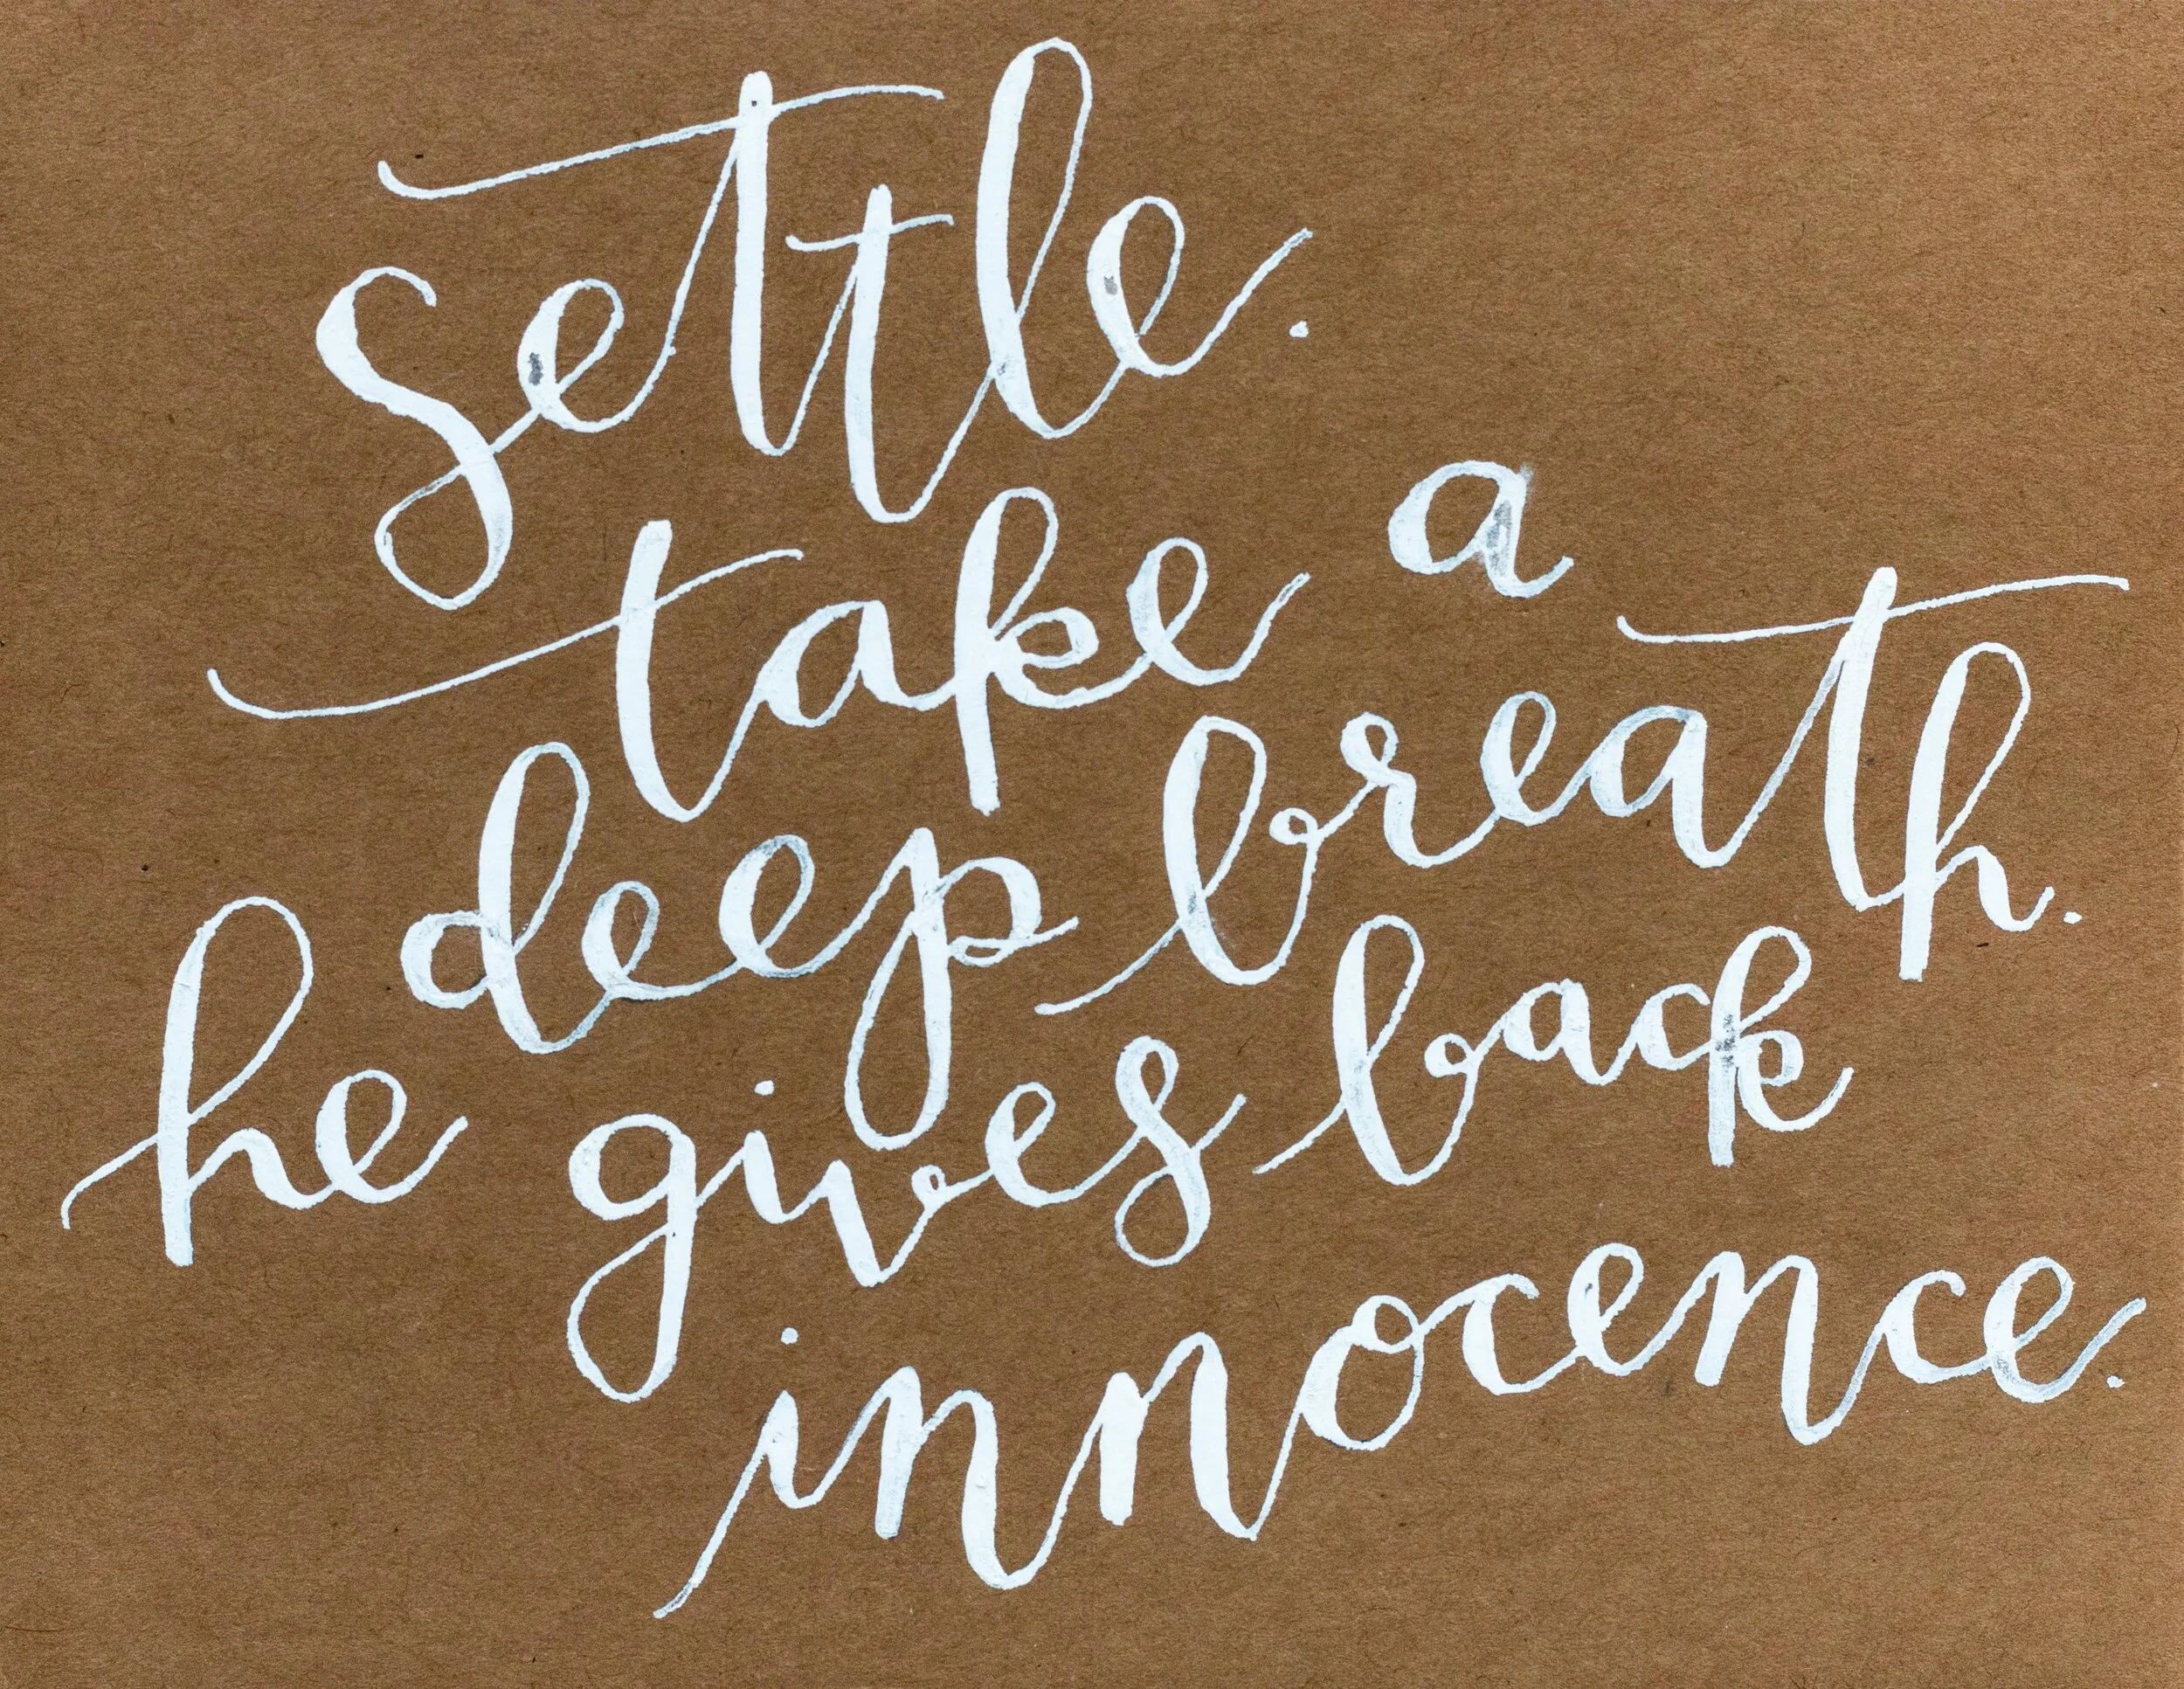 settle.
take a
deep breath.
he gives back
innocence.